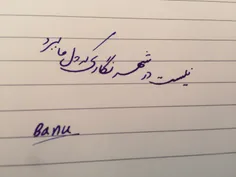 نیست در شهر نگاری که دل ما ببرد
Banu